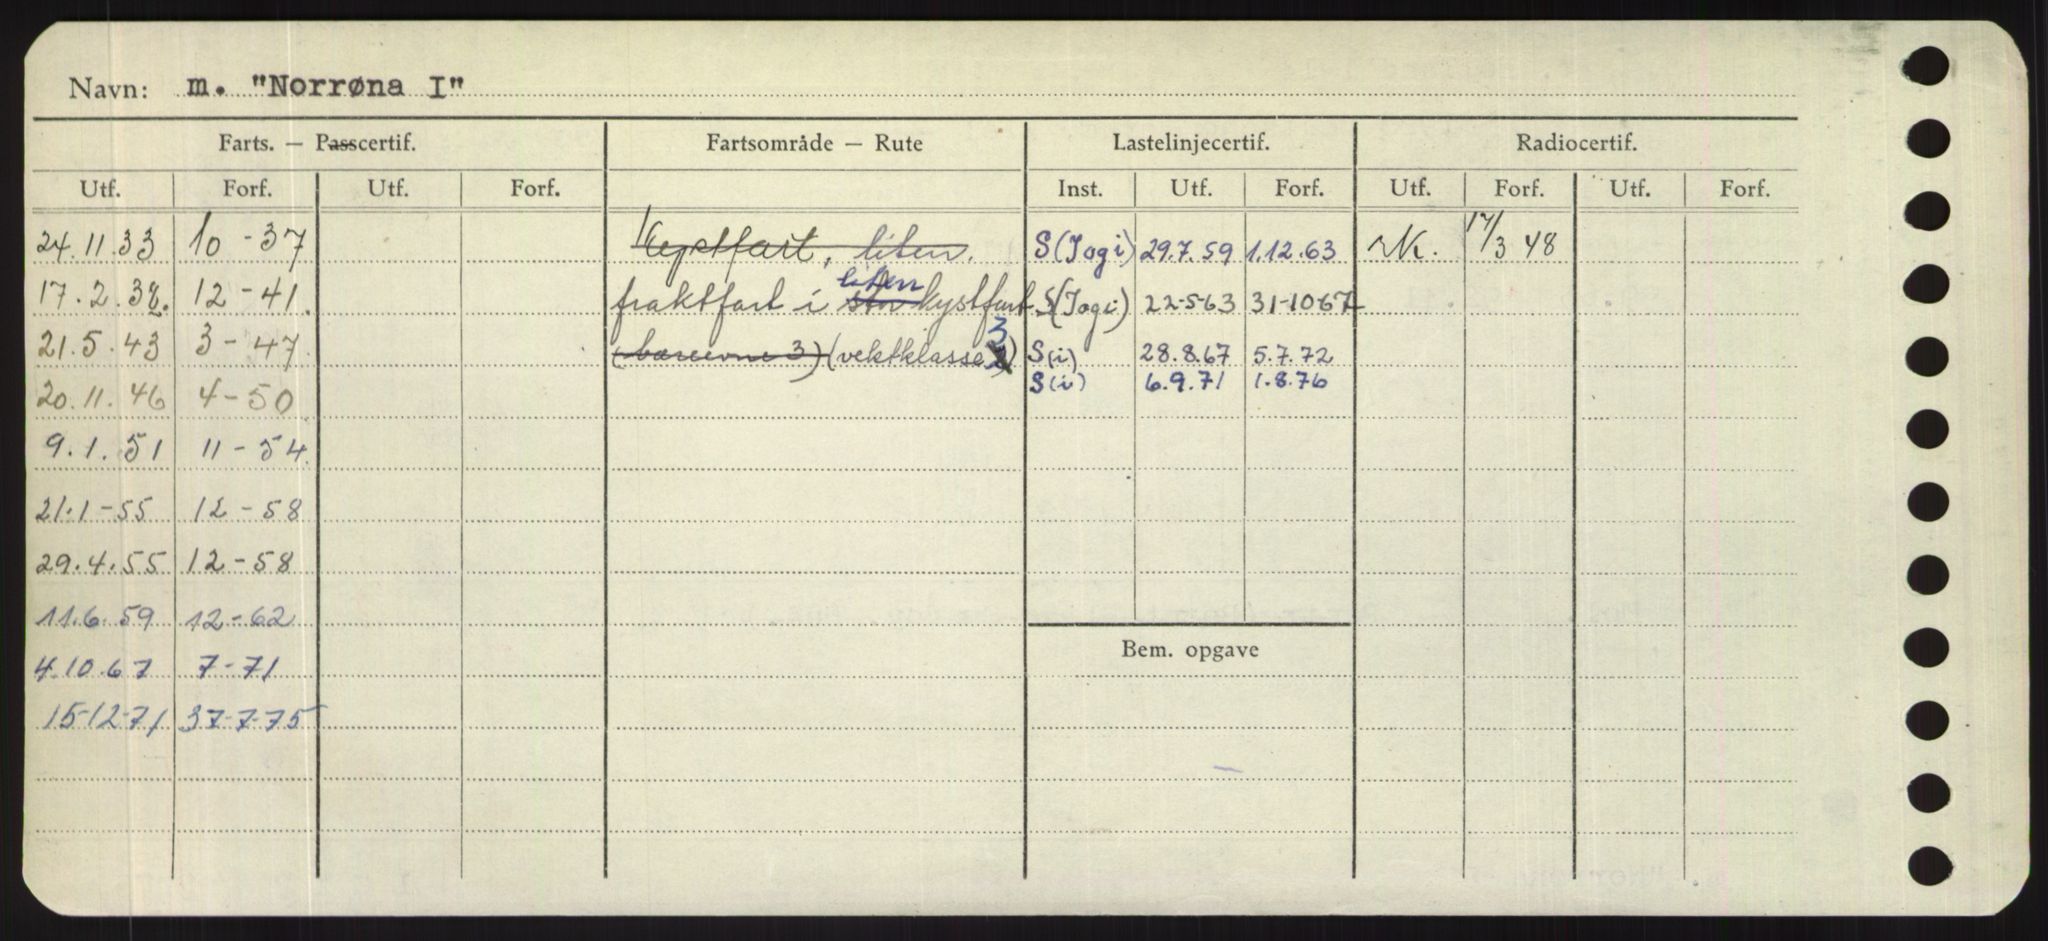 Navn: m. "Norrøna I"
Farts. — Passcertif. Fartsområde — Rute Lastelinjecertif. Radiocertif.
Utf. Forf. Utf. Forf. Inst. Utf. Forf. Utf. Forf. Utf. Forf.
24.11.33 10-37 Kystfart, liten. S(Jogi) 29.7.59 1.12.63 NK. 17/3 48
liten
17.2.38. 12-41. fraktfart i stor kystfart S(Jogi) 22-5-63 31-10-67
3
21.5.43 3-47. (bæreevne 3) (vektklasse ) S(i) 28.8.67 5.7.72
20.11.46 4-50 S(i) 6.9.71 1.8.76
9.1.51 11-54.
21.1-55 12-58
29.4.55 12-58
11.6.59 12-62
4.10.67 7-71
Bem. opgave
15-12-71 37-7-75